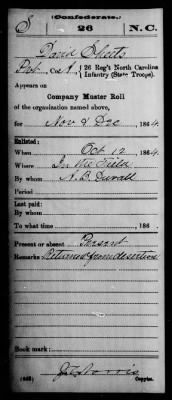 S
(Confederate.)
26 N.C.
David Sheets
Pvt, Co. A, 26 Reg't North Carolina
Infantry (State Troops).
Appears on
Company Muster Roll
of the organization named above,
for Nov & Dec, 1864.
Enlisted:
When Oct 12, 1864.
Where In the Field
By whom N. B. Duvall
Period
Last paid:
By whom
To what time , 186 .
Present or absent Present
Remarks: Returned from desertion
Book mark:
Copyist.